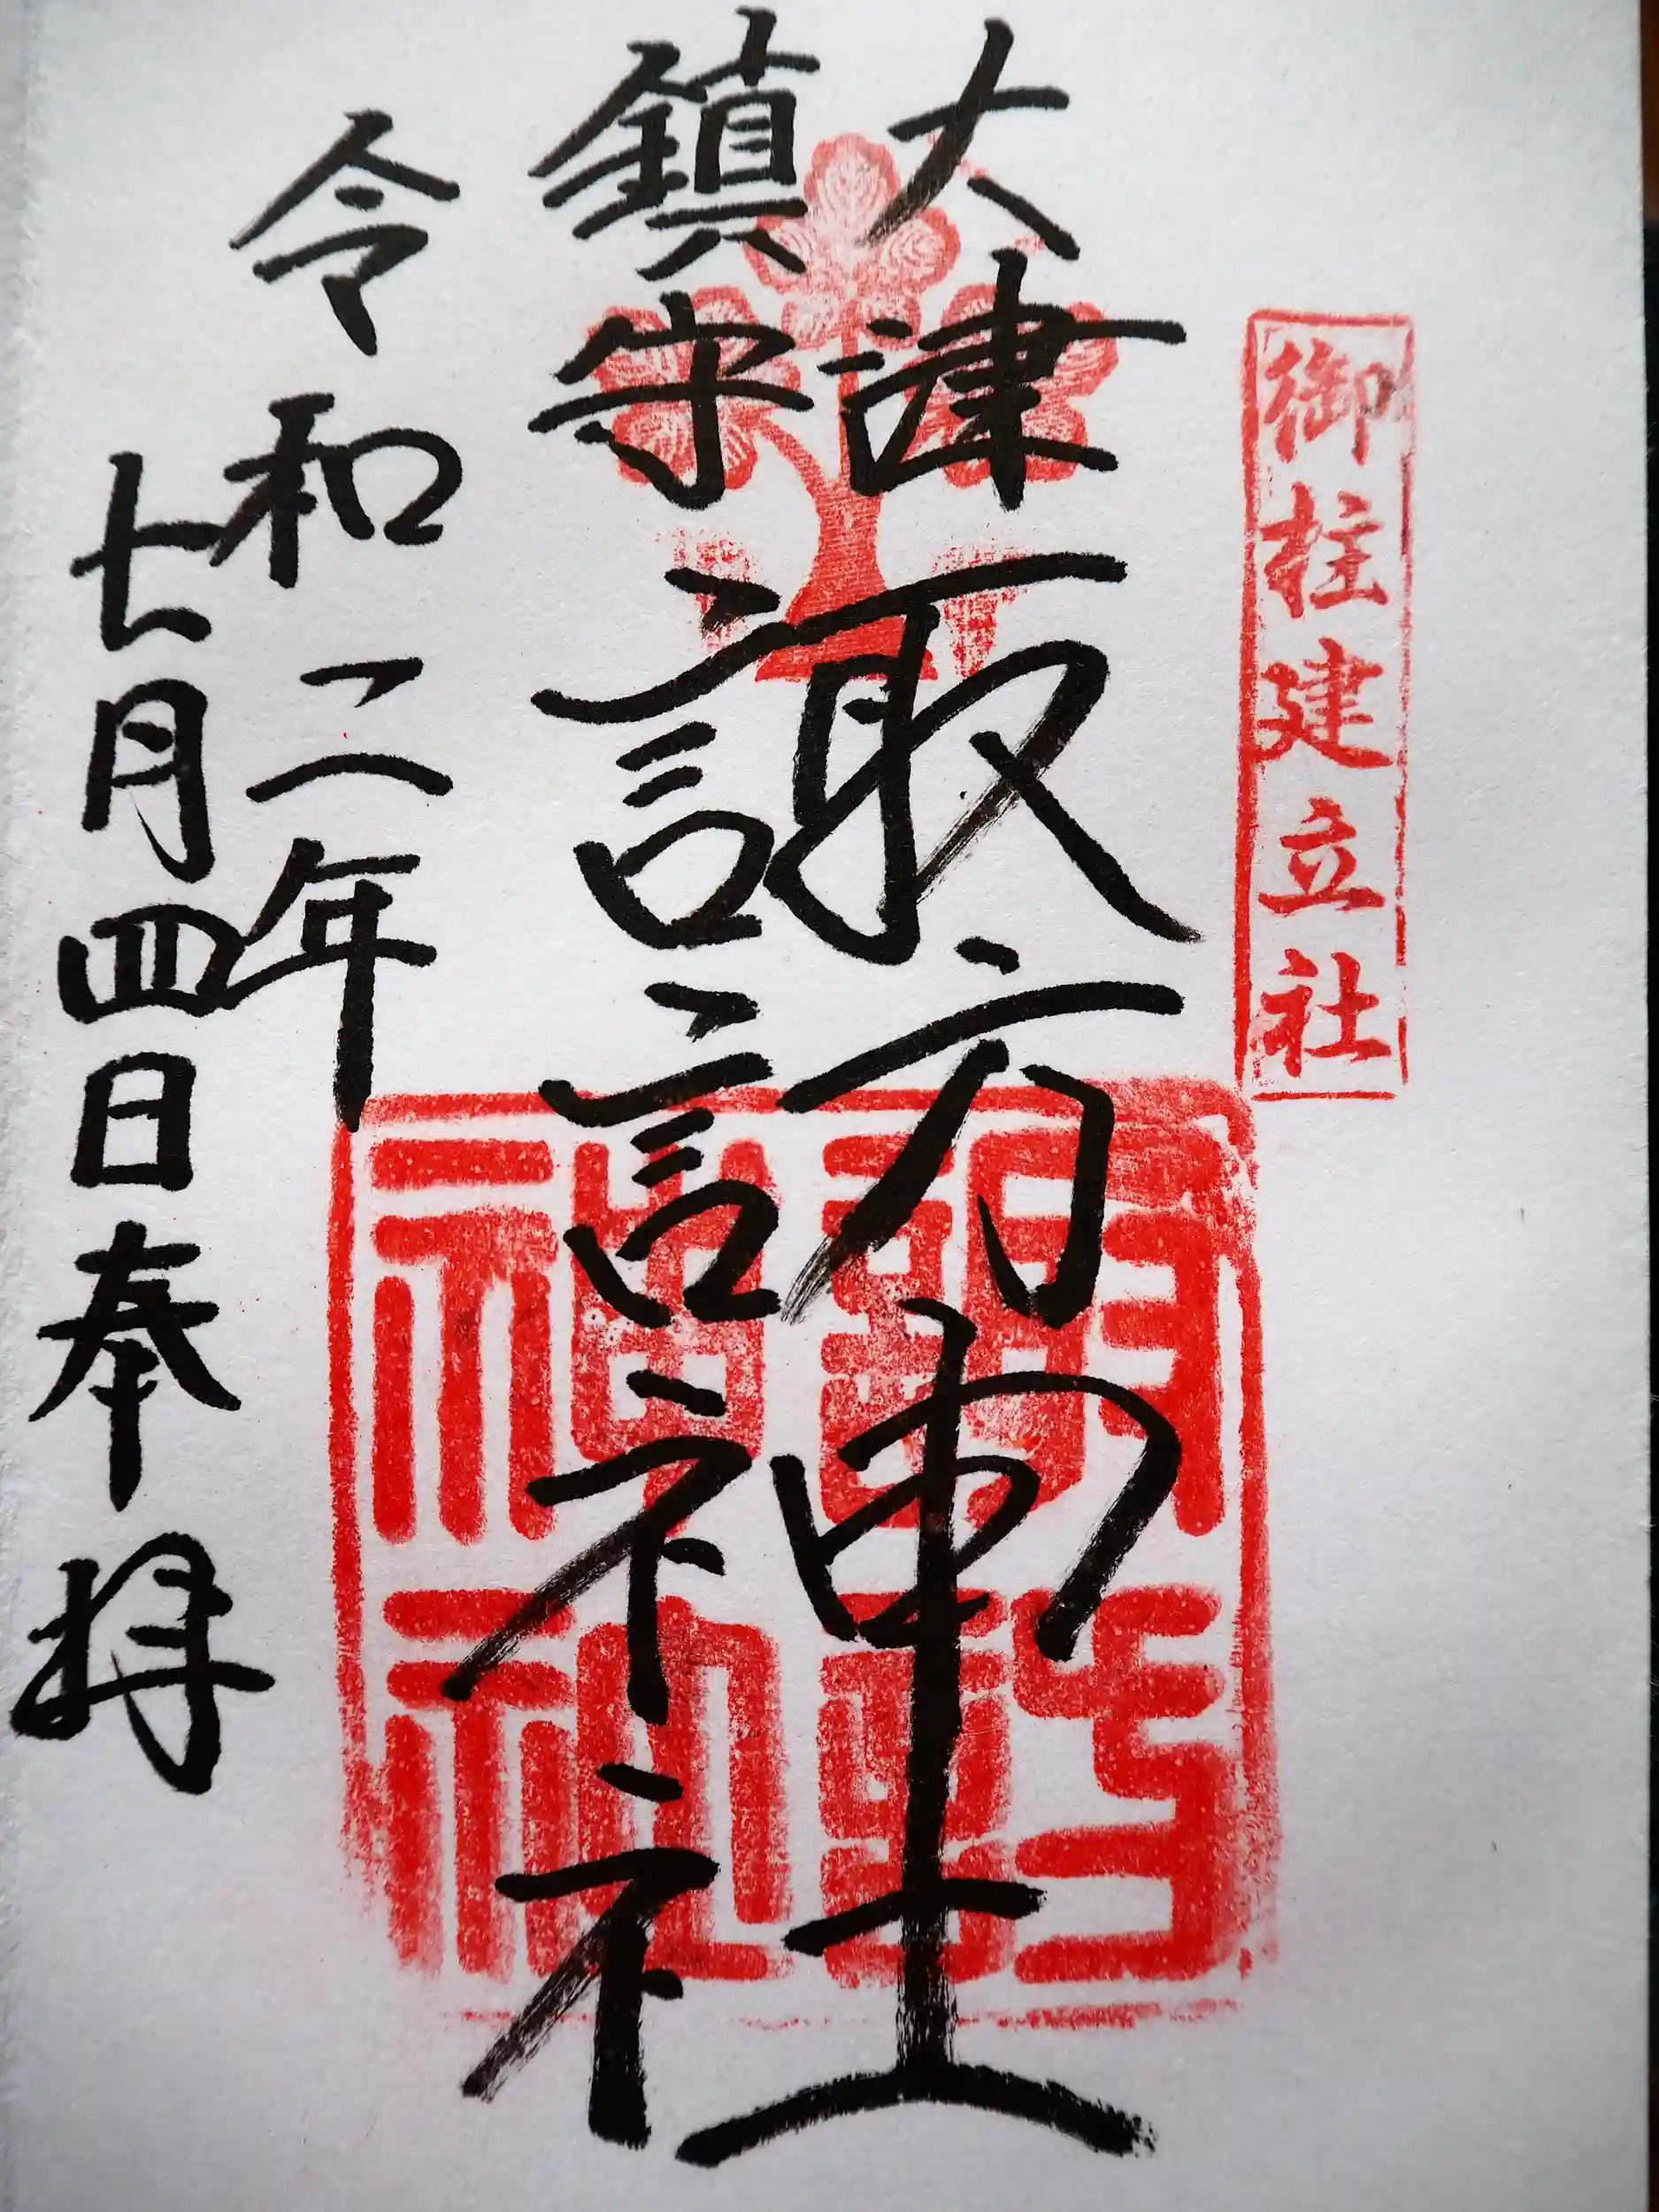 御柱建立社
大津
鎮守
諏訪神社
令和二年
七月四日奉拝
諏訪神社